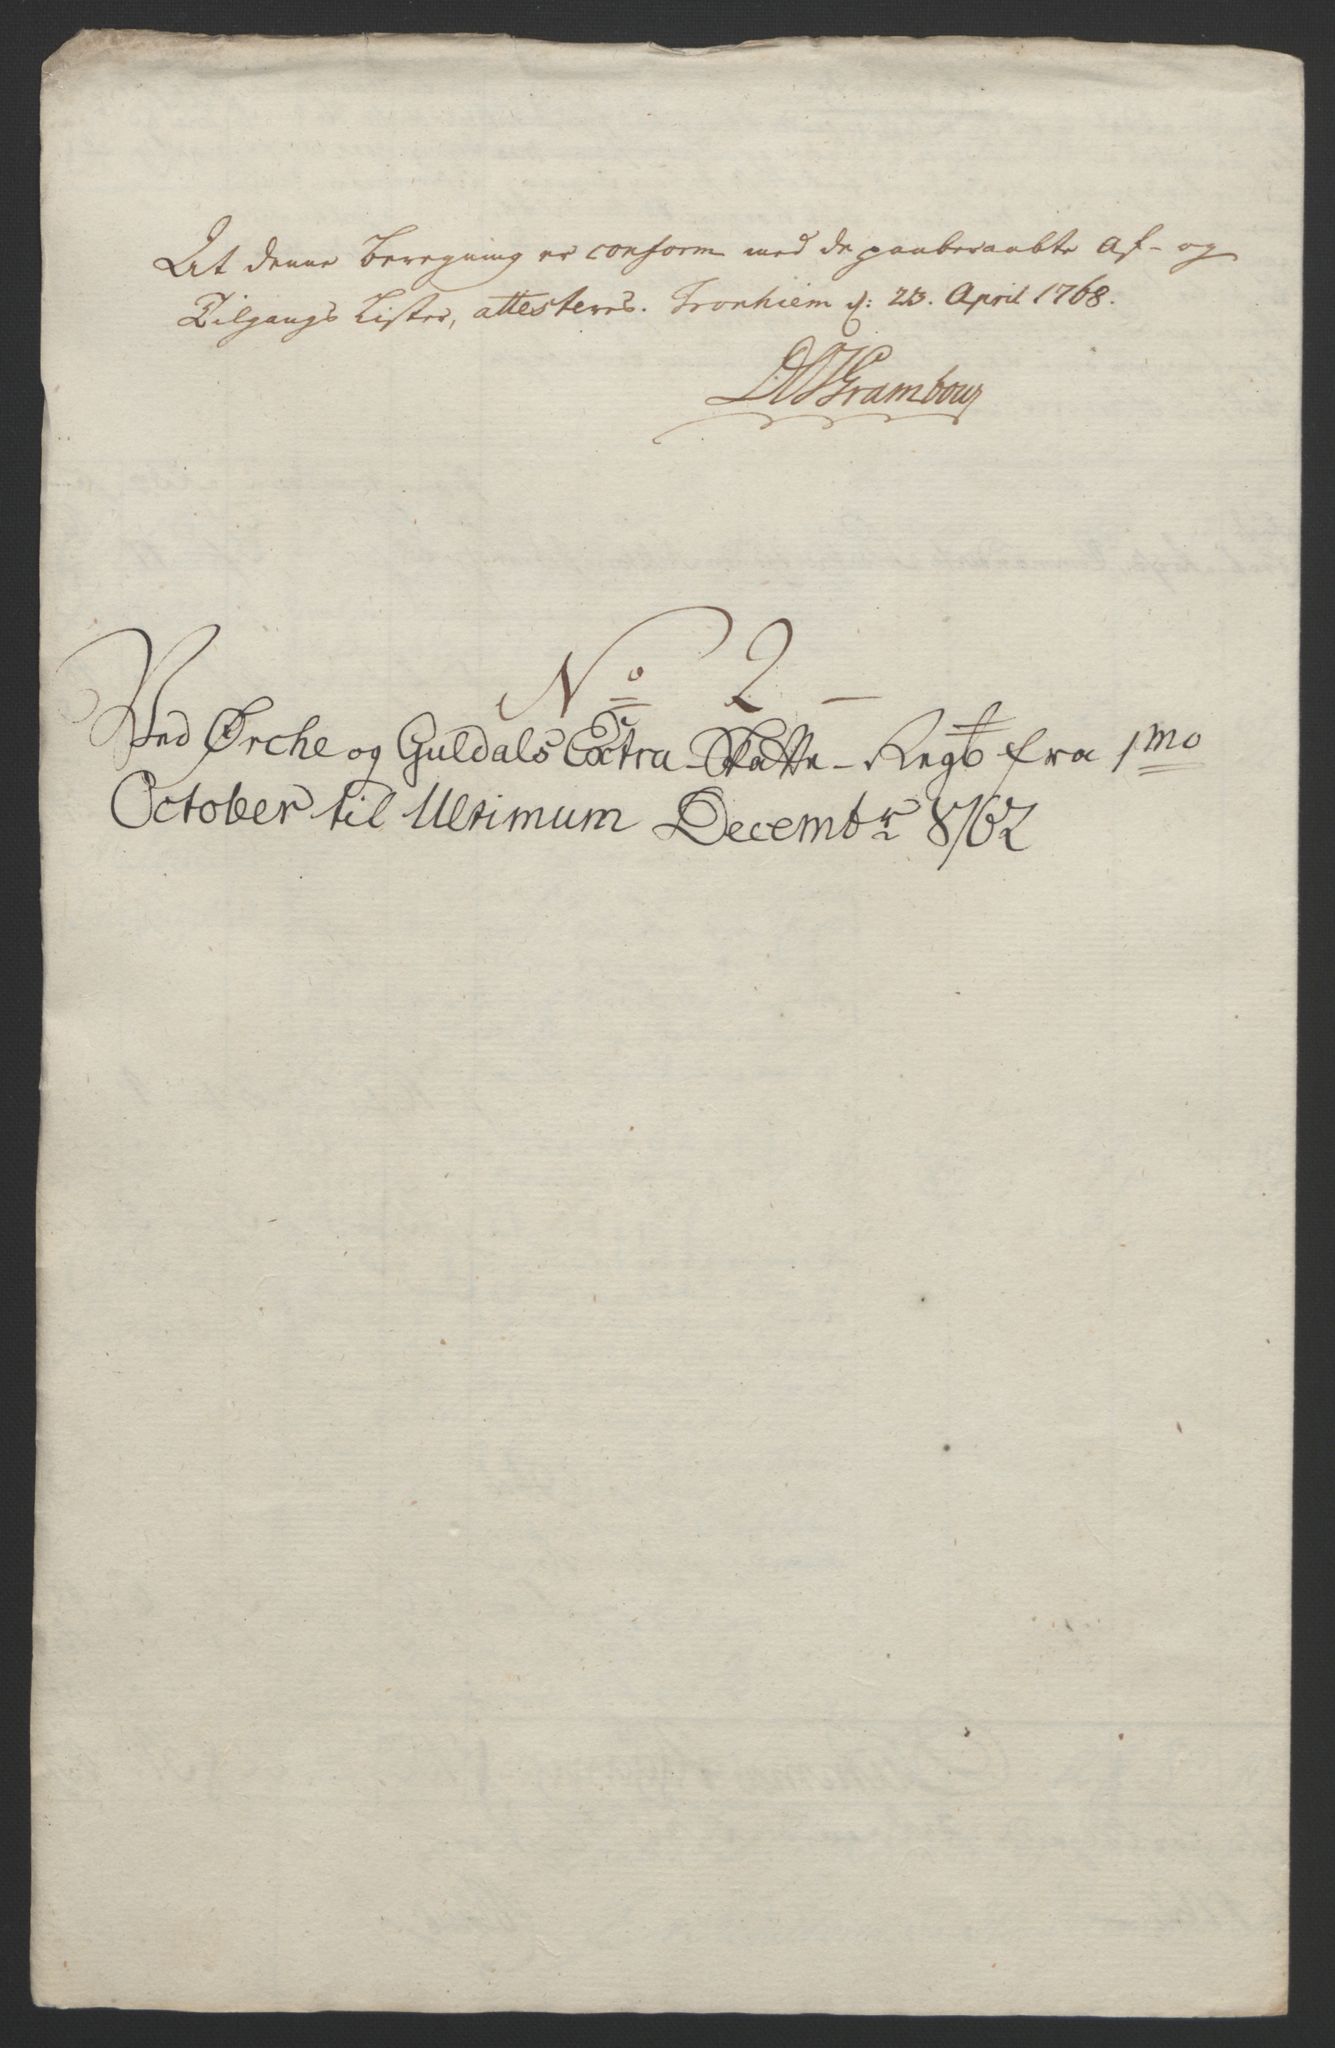 At denne Beregning er conform med de paaberaabte Af- og
Tilgangs Lister, attesteres. Tronhiem d: 23. April 1768.
Grambow
No 2
Ved Ørche og Guldals Extra-Skatte-Regsb fra 1mo
October til Ultimum Decembr 1762